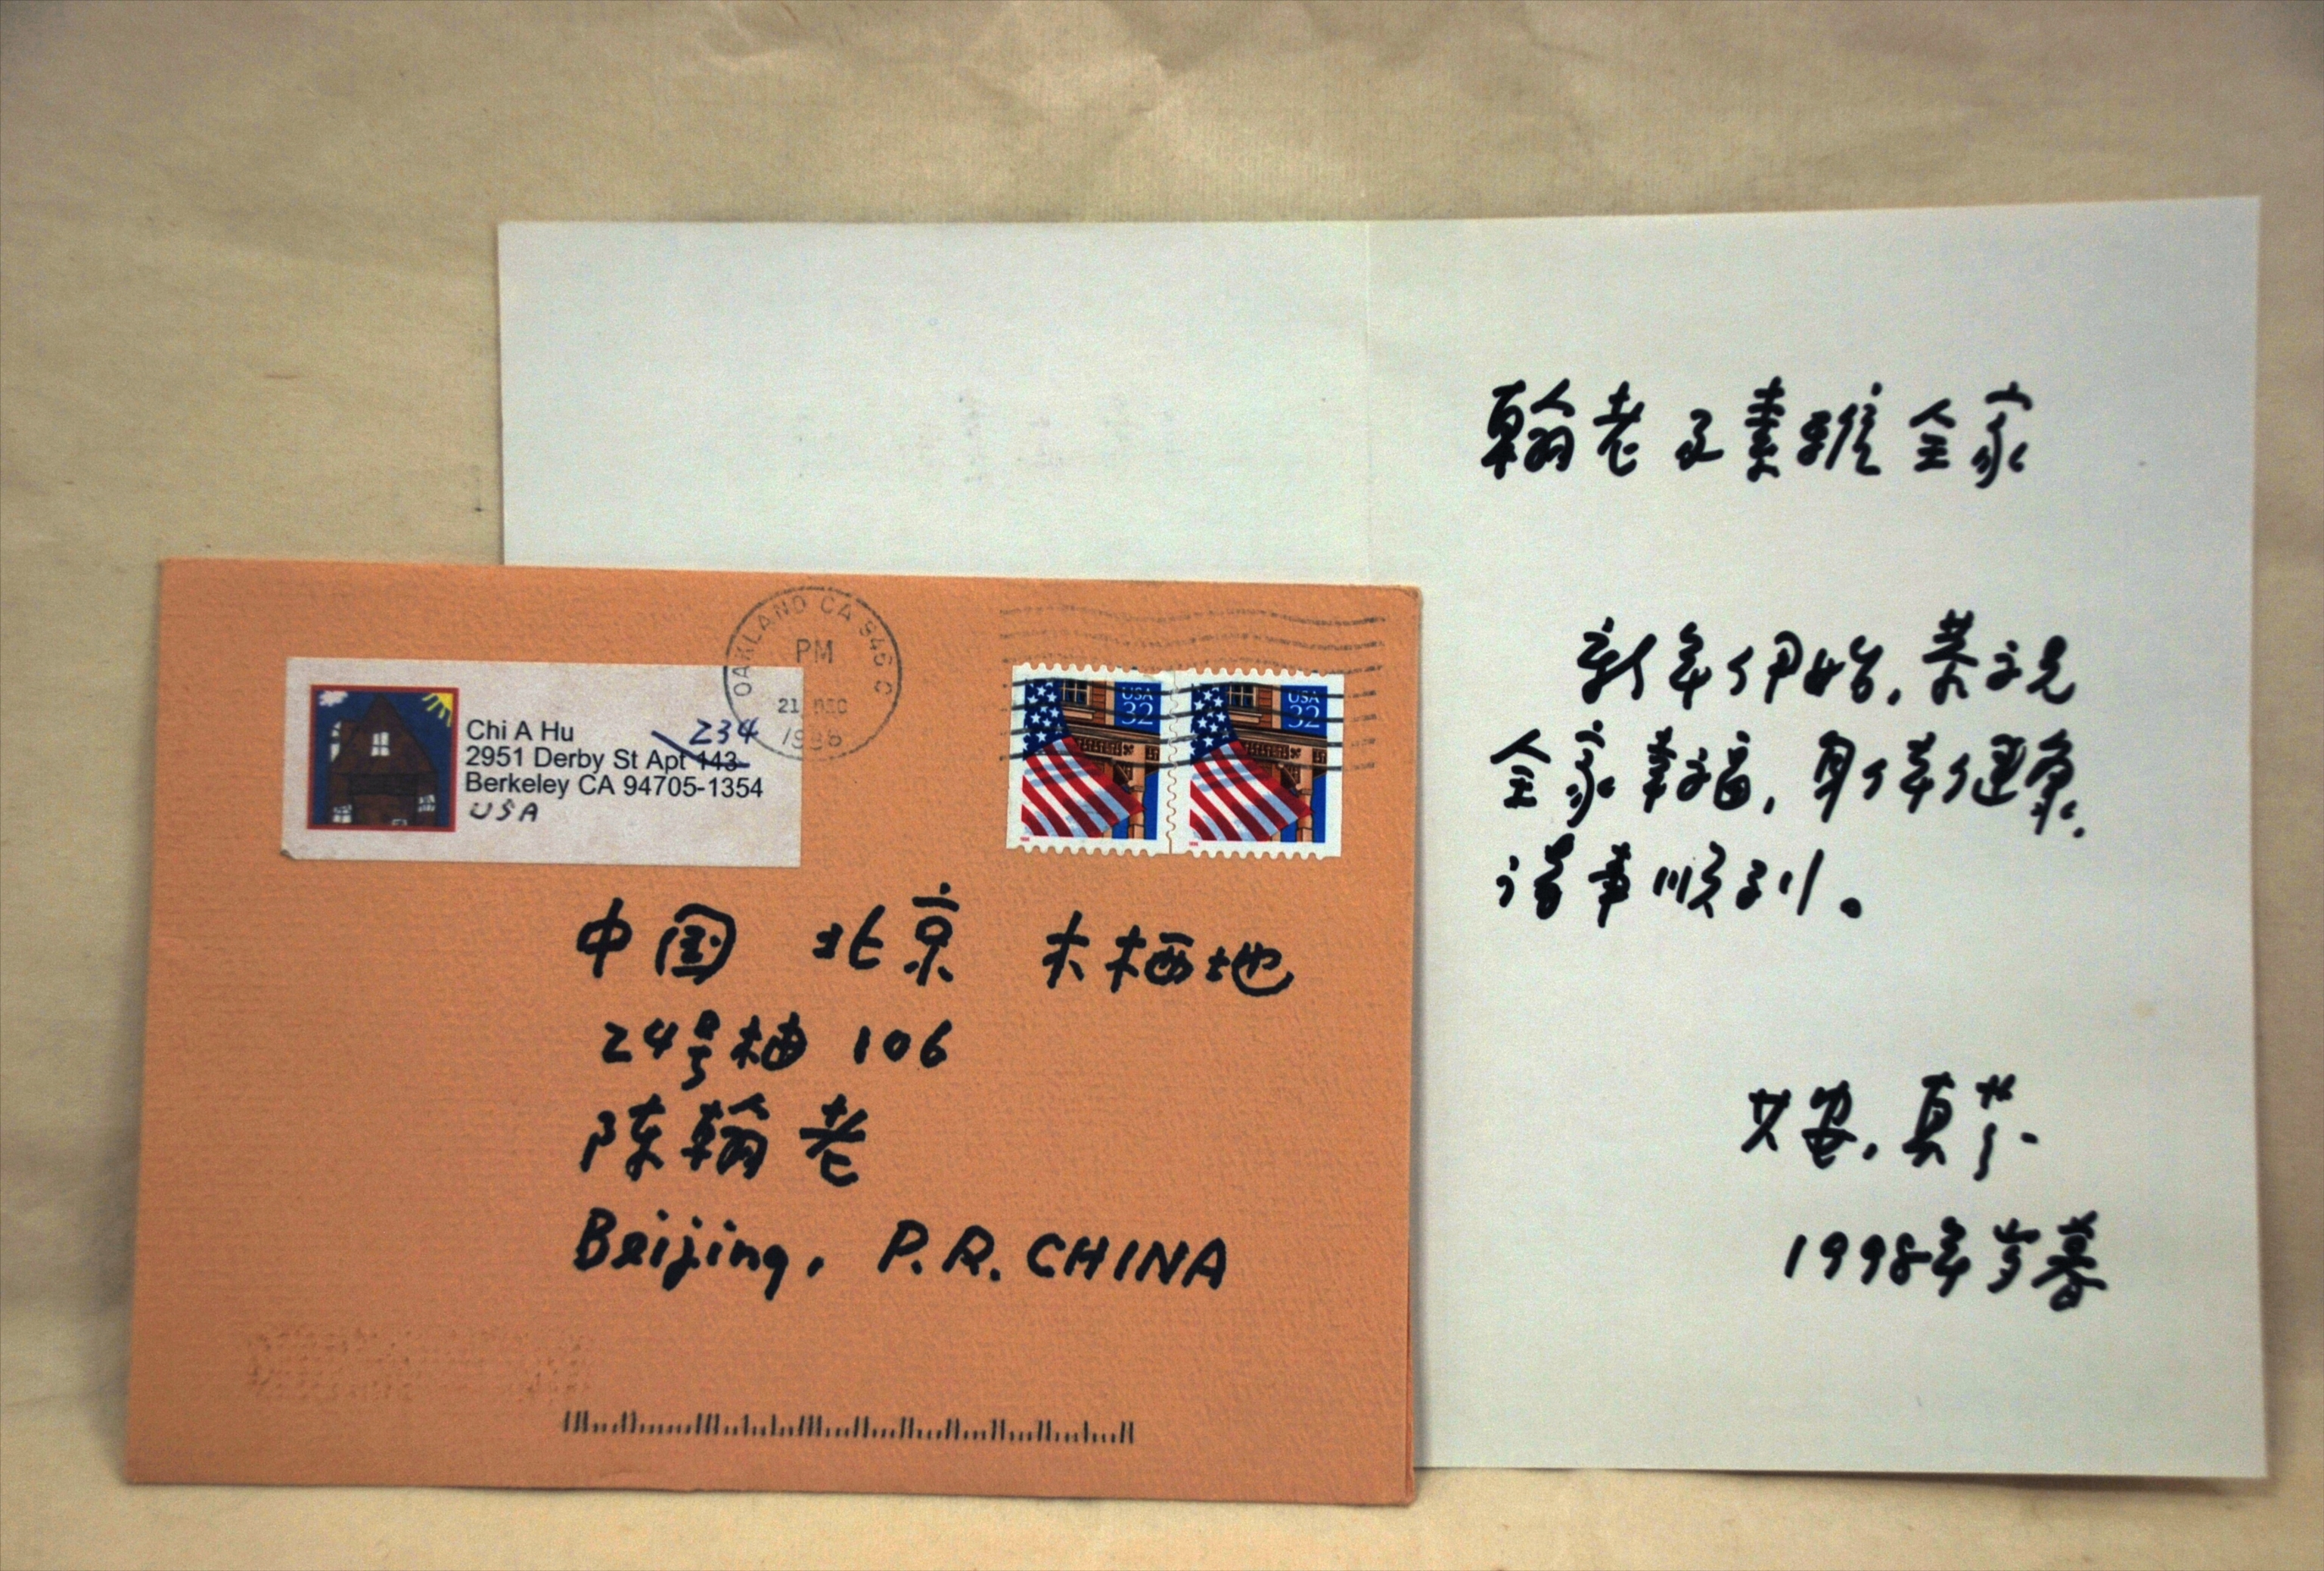 OAKLAND CA 946
PM
21 DEC
Chi A Hu
234
2951 Derby St Apt 143
Berkeley CA 94705-1354
USA
USA 32
USA 32
中国 北京 木樨地
24号楼 106
陈翰老
Beijing, P.R. CHINA
翰老及素雅全家
新年伊始,恭祝
全家幸福,身体健康,
诸事顺利。
真
1998年岁暮